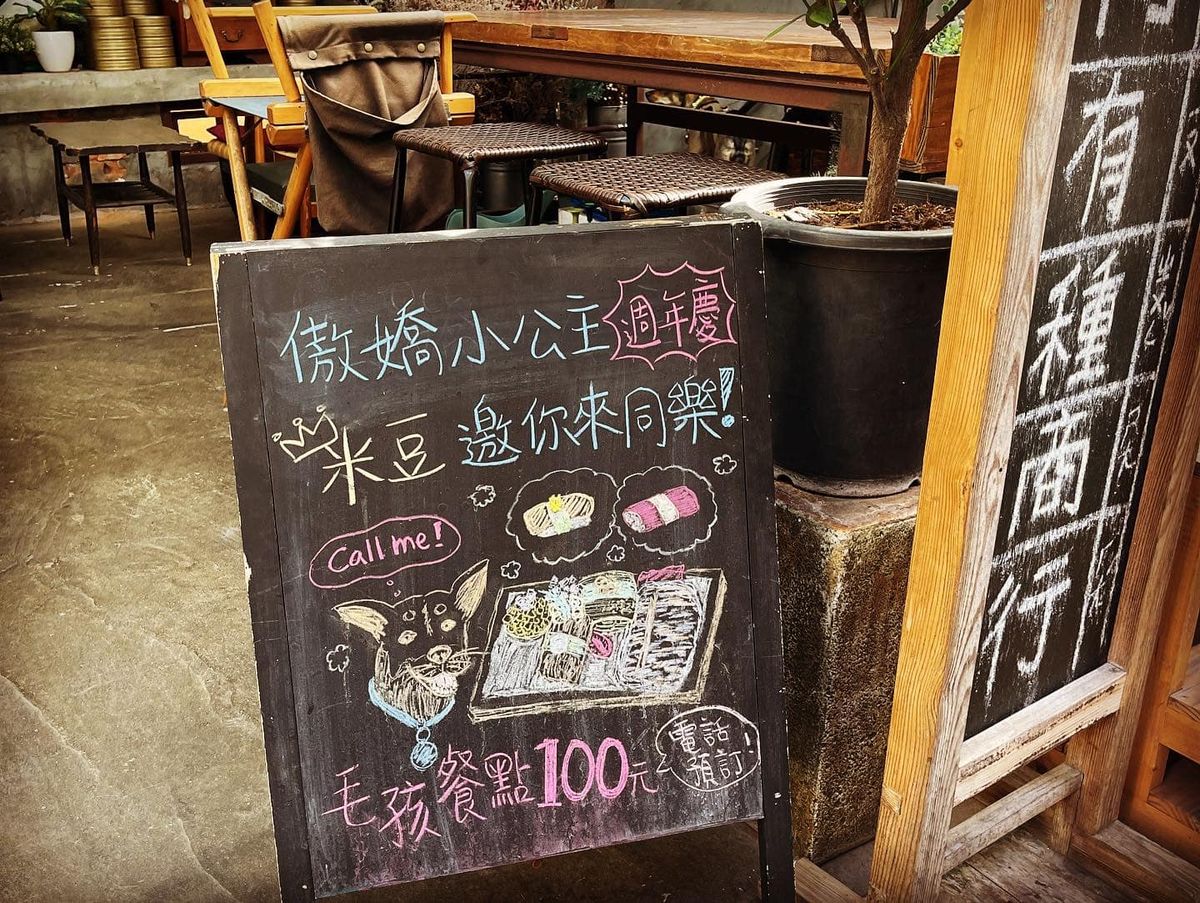 傲嬌小公主 週年慶
米豆 邀你來同樂!
call me!
毛孩餐點100元
電話
預訂!
有種商行